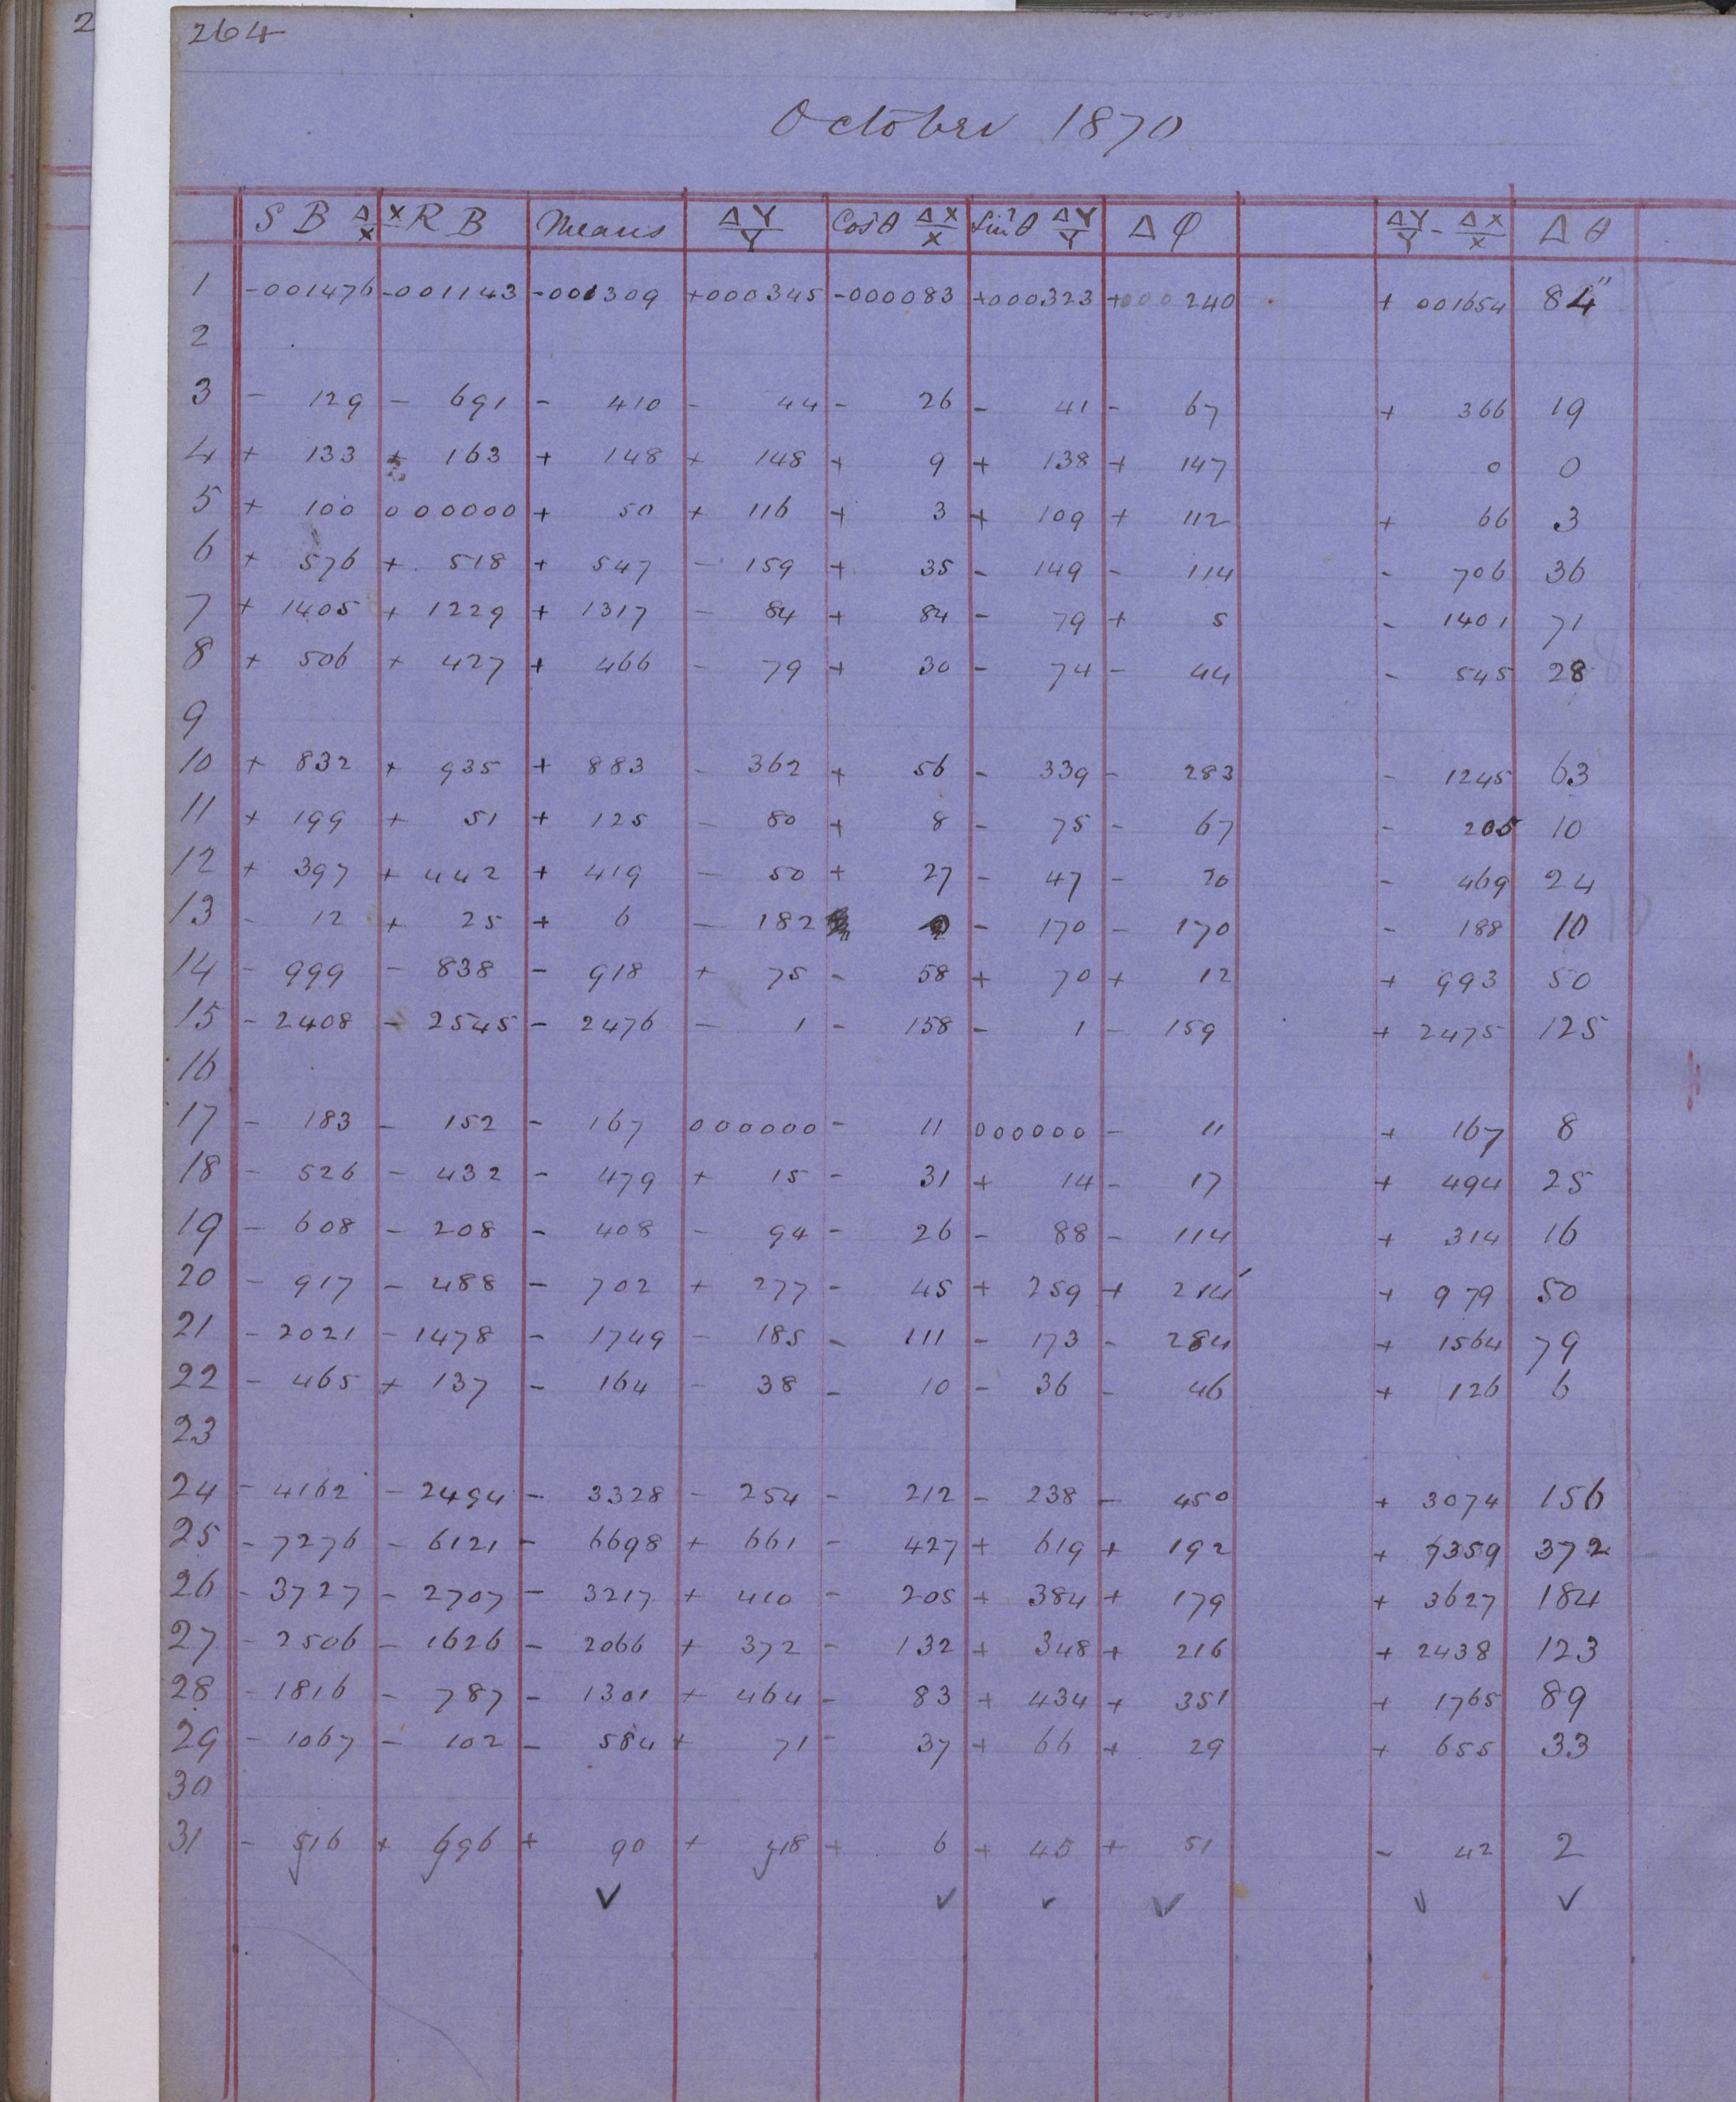 2
264
October 1870
S B ΔX/X R B Means ΔY/Y Cos²θ ΔX/X Sin²θ ΔY/Y Δφ ΔY/Y - ΔX/X Δθ
1 -001476 -001143 -001309 +000345 -000083 +000323 +000240 + 001654 84"
2
3 - 129 - 691 - 410 - 44 - 26 - 41 - 67 + 366 19
4 + 133 + 163 + 148 + 148 + 9 + 138 + 147 0 0
5 + 100 000000 + 50 + 116 + 3 + 109 + 112 + 66 3
6 + 576 + 518 + 547 - 159 + 35 - 149 - 114 - 706 36
7 + 1405 + 1229 + 1317 - 84 + 84 - 79 + 5 - 1401 71
8 + 506 + 427 + 466 - 79 + 30 - 74 - 44 - 545 28
9
10 + 832 + 935 + 883 - 362 + 56 - 339 - 283 - 1245 63
11 + 199 + 51 + 125 - 80 + 8 - 75 - 67 - 205 10
12 + 397 + 442 + 419 - 50 + 27 - 47 - 20 - 469 24
13 - 12 + 25 + 6 - 182 0 - 170 - 170 - 188 10
14 - 999 - 838 - 918 + 75 - 58 + 70 + 12 + 993 50
15 - 2408 - 2545 - 2476 - 1 - 158 - 1 - 159 + 2475 125
16
17 - 183 - 152 - 167 000000 - 11 000000 - 11 + 167 8
18 - 526 - 432 - 479 + 15 - 31 + 14 - 17 + 494 25
19 - 608 - 208 - 408 - 94 - 26 - 88 - 114 + 314 16
20 - 917 - 488 - 702 + 277 - 45 + 259 + 214 + 979 50
21 - 2021 - 1478 - 1749 - 185 - 111 - 173 - 284 + 1564 79
22 - 465 + 137 - 164 - 38 - 10 - 36 - 46 + 126 6
23
24 - 4162 - 2494 - 3328 - 254 - 212 - 238 - 450 + 3074 156
25 - 7276 - 6121 - 6698 + 661 - 427 + 619 + 192 + 7359 372
26 - 3727 - 2707 - 3217 + 410 - 205 + 384 + 179 + 3627 184
27 - 2506 - 1626 - 2066 + 372 - 132 + 348 + 216 + 2438 123
28 - 1816 - 787 - 1301 + 464 - 83 + 434 + 351 + 1765 89
29 - 1067 - 102 - 584 + 71 - 37 + 66 + 29 + 655 33
30
31 - 516 + 696 + 90 + 48 + 6 + 45 + 51 - 42 2
✓ ✓ ✓ ✓ ✓ ✓